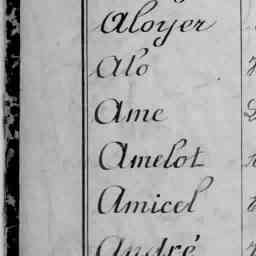 Aloyer
Alo
Ame
Amelot
Amicel
André